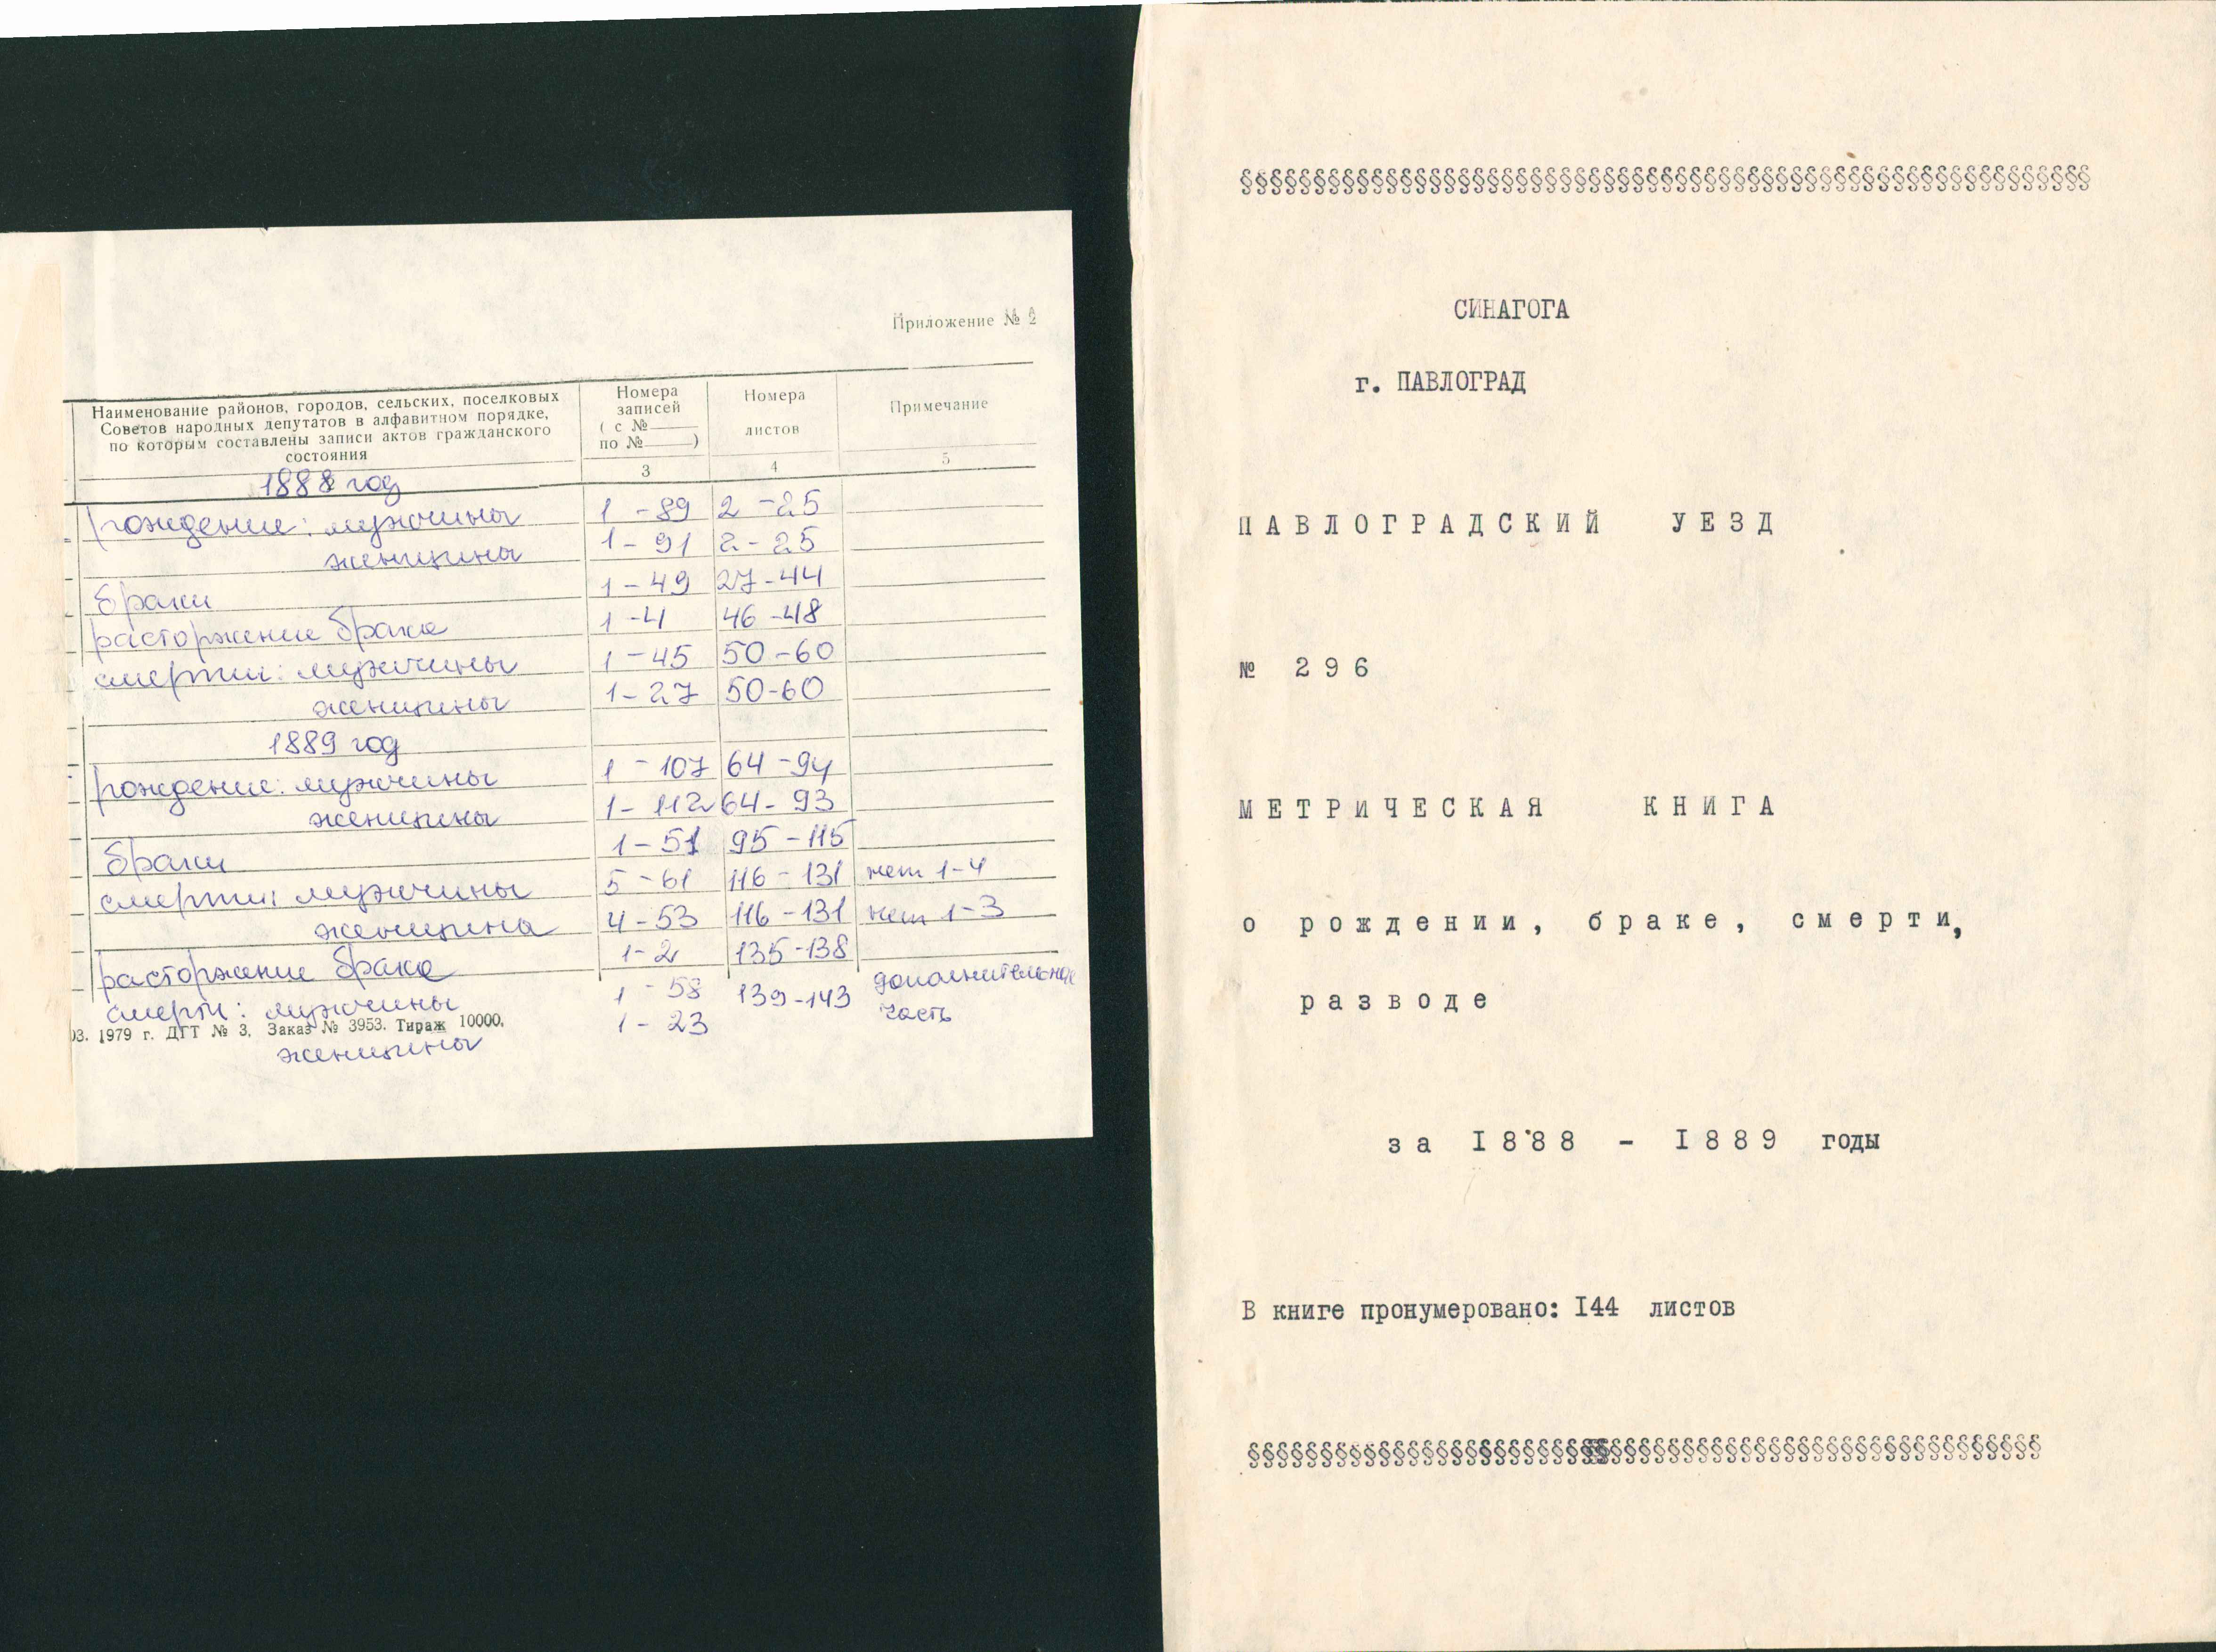 Приложение № 2
Наименование районов, городов, сельских, поселковых
Советов народных депутатов в алфавитном порядке,
по которым составлены записи актов гражданского
состояния
Номера
записей
( с №
по № )
Номера
листов
Примечание
3 4 5
1888 год
рождение: мужчины 1 - 89 2 - 25
женщины 1 - 91 2 - 25
браки 1 - 49 27 - 44
расторжение брака 1 - 4 46 - 48
смерти: мужчины 1 - 45 50 - 60
женщины 1 - 27 50 - 60
1889 год
рождение: мужчины 1 - 107 64 - 94
женщины 1 - 112 64 - 93
браки 1 - 51 95 - 115
смерти: мужчины 5 - 61 116 - 131 нет 1-4
женщина 4 - 53 116 - 131 нет 1-3
расторжение брака 1 - 2 135 - 138
смерти: мужчины 1 - 58 139 - 143 дополнительная
03. 1979 г. ДГТ № 3, Заказ № 3953. Тираж 10000.
женщины 1 - 23 часть
§§§§§§§§§§§§§§§§§§§§§§§§§§§§§§§§§§§§§§§§§§§§§§§§§§§§§§§§§§§
СИНАГОГА
г. ПАВЛОГРАД
ПАВЛОГРАДСКИЙ УЕЗД
№ 296
МЕТРИЧЕСКАЯ КНИГА
о рождении, браке, смерти,
разводе
за I888 - I889 годы
В книге пронумеровано: I44 листов
§§§§§§§§§§§§§§§§§§§§§§§§§§§§§§§§§§§§§§§§§§§§§§§§§§§§§§§